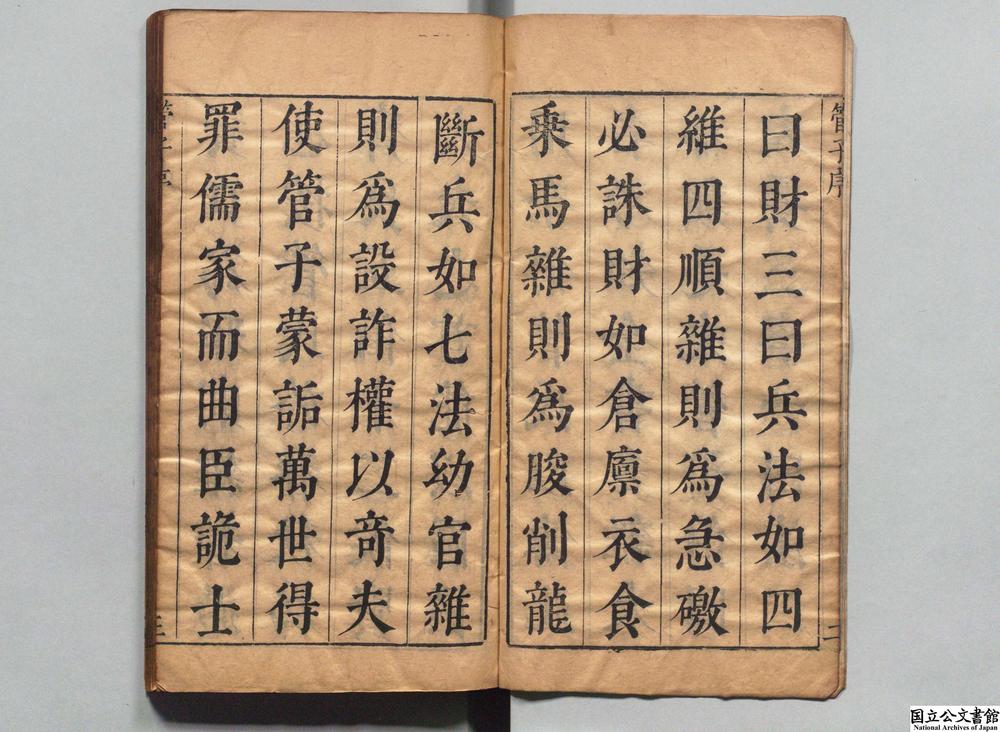 管子序
曰財三曰兵法如四
維四順雜則爲急礉
必誅財如倉廪衣食
乗馬雜則爲朘削龍
二
斷兵如七法幼官雜
則爲設詐權以竒夫
使管子蒙詬萬世得
罪儒家而曲臣詭士
管子序
三
国立公文書館
National Archives of Japan